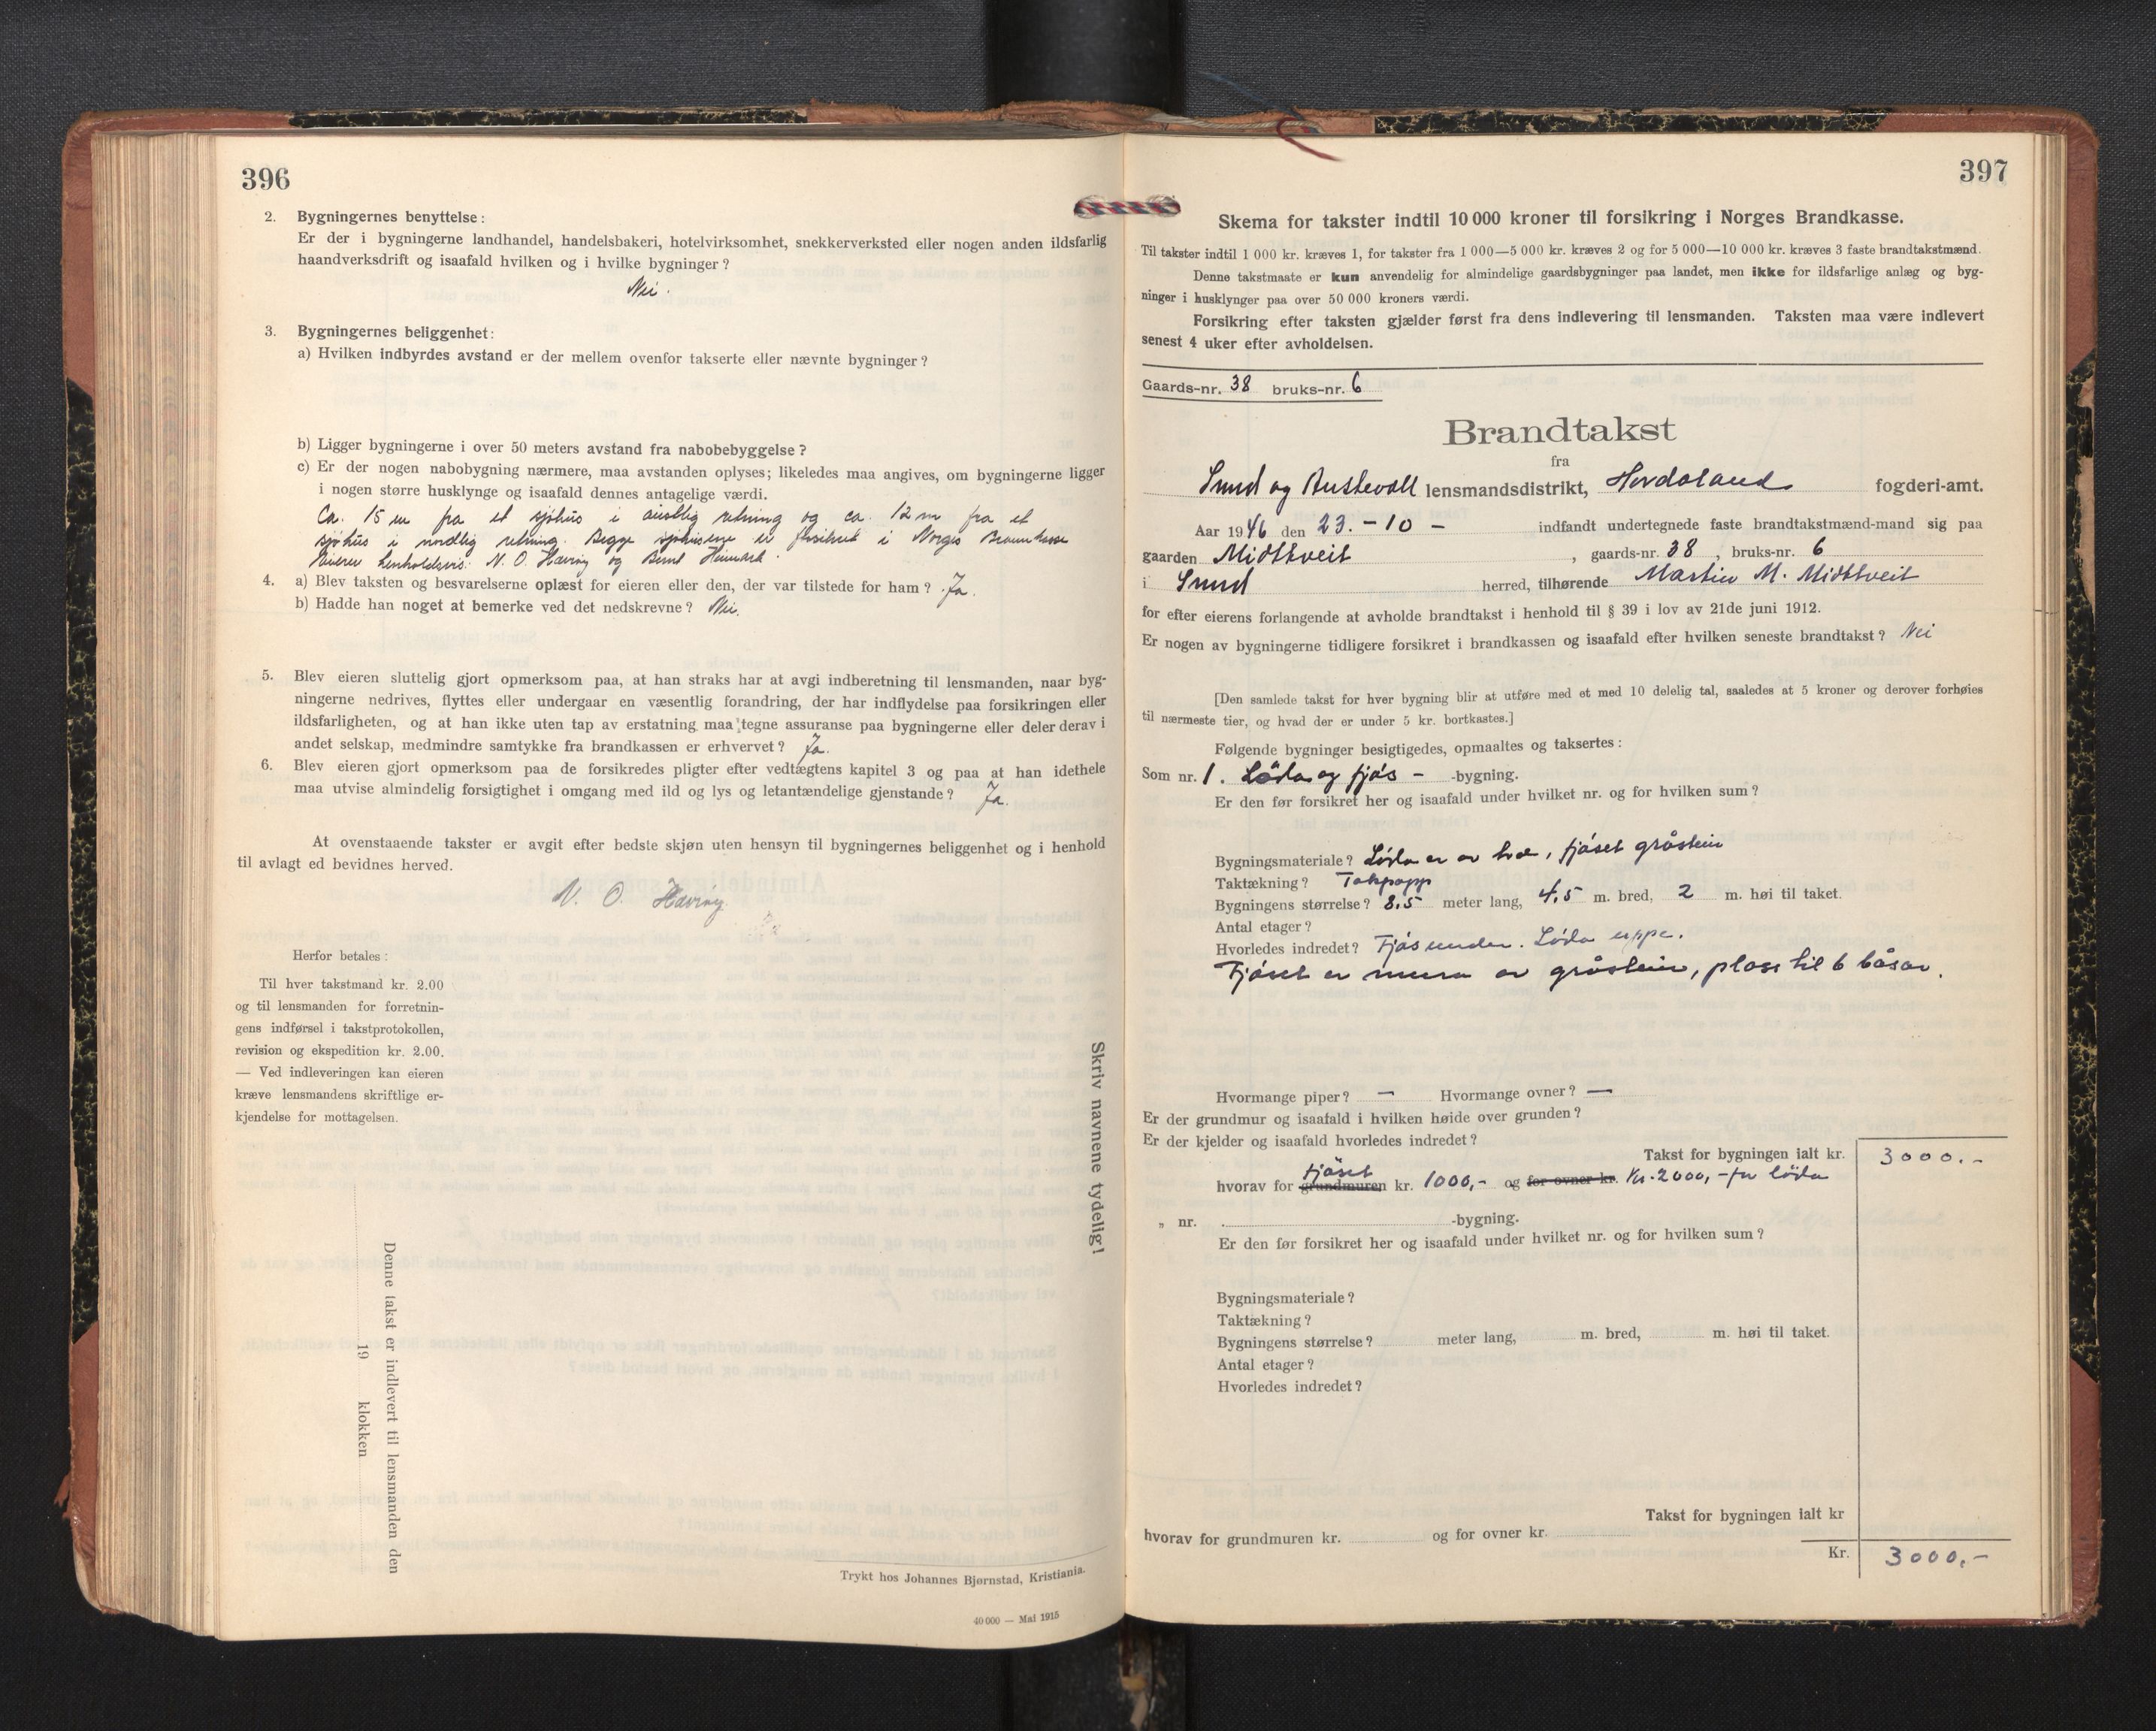 396
2. Bygningernes benyttelse:
Er der i bygningerne landhandel, handelsbakeri, hotelvirksomhet, snekkerverksted eller nogen anden ildsfarlig
haandverksdrift og isaafald hvilken og i hvilke bygninger?
Nei.
3. Bygningernes beliggenhet:
a) Hvilken indbyrdes avstand er der mellem ovenfor takserte eller nævnte bygninger?
b) Ligger bygningerne i over 50 meters avstand fra nabobebyggelse?
c) Er der nogen nabobygning nærmere, maa avstanden oplyses; likeledes maa angives, om bygningerne ligger
i nogen større husklynge og isaafald dennes antagelige værdi.
Ca. 15 m fra et sjøhus i austlig retning og ca. 12 m fra et
sjøhus i nordlig retning. Begge sjøhusene er forsikret i Norges Brannkasse
henholdsvis: N. O. Havirøy og Bernt Heimark.
4. a) Blev taksten og besvarelserne oplæst for eieren eller den, der var tilstede for ham? Ja.
b) Hadde han noget at bemerke ved det nedskrevne? Nei.
5. Blev eieren sluttelig gjort opmerksom paa, at han straks har at avgi indberetning til lensmanden, naar byg-
ningerne nedrives, flyttes eller undergaar en væsentlig forandring, der har indflydelse paa forsikringen eller
ildsfarligheten, og at han ikke uten tap av erstatning maa tegne assuranse paa bygningerne eller deler derav i
andet selskap, medmindre samtykke fra brandkassen er erhvervet? Ja.
6. Blev eieren gjort opmerksom paa de forsikredes pligter efter vedtægtens kapitel 3 og paa at han idethele
maa utvise almindelig forsigtighet i omgang med ild og lys og letantændelige gjenstande? Ja.
At ovenstaaende takster er avgit efter bedste skjøn uten hensyn til bygningernes beliggenhet og i henhold
til avlagt ed bevidnes herved.
N. O. Havirøy
Herfor betales:
Til hver takstmand kr. 2.00
og til lensmanden for forretnin-
gens indførsel i takstprotokollen,
revision og ekspedition kr. 2.00.
— Ved indleveringen kan eieren
kræve lensmandens skriftlige er-
kjendelse for mottagelsen.
Skriv navnene tydelig!
Denne takst er indlevert til lensmanden den
19 klokken
Trykt hos Johannes Bjørnstad, Kristiania.
40 000 — Mai 1915
397
Skema for takster indtil 10 000 kroner til forsikring i Norges Brandkasse.
Til takster indtil 1 000 kr. kræves 1, for takster fra 1 000—5 000 kr. kræves 2 og for 5 000—10 000 kr. kræves 3 faste brandtakstmænd.
Denne takstmaate er kun anvendelig for almindelige gaardsbygninger paa landet, men ikke for ildsfarlige anlæg og byg-
ninger i husklynger paa over 50 000 kroners værdi.
Forsikring efter taksten gjælder først fra dens indlevering til lensmanden. Taksten maa være indlevert
senest 4 uker efter avholdelsen.
Gaards-nr. 38 bruks-nr. 6
Brandtakst
fra
Sund og Austevoll lensmandsdistrikt, Hordaland fogderi-amt.
Aar 1946 den 23. - 10 - indfandt undertegnede faste brandtakstmænd-mand sig paa
gaarden Midttveit, gaards-nr. 38, bruks-nr. 6
i Sund herred, tilhørende Martin M. Midttveit
for efter eierens forlangende at avholde brandtakst i henhold til § 39 i lov av 21de juni 1912.
Er nogen av bygningerne tidligere forsikret i brandkassen og isaafald efter hvilken seneste brandtakst? Nei
[Den samlede takst for hver bygning blir at utføre med et med 10 delelig tal, saaledes at 5 kroner og derover forhøies
til nærmeste tier, og hvad der er under 5 kr. bortkastes.]
Følgende bygninger besigtigedes, opmaaltes og taksertes:
Som nr. 1. Löda og fjós - -bygning.
Er den før forsikret her og isaafald under hvilket nr. og for hvilken sum?
Bygningsmateriale? Löda er av tre, fjöset gråstein
Taktækning? Takpapp
Bygningens størrelse? 8,5 meter lang, 4,5 m. bred, 2 m. høi til taket.
Antal etager?
Hvorledes indredet? Fjós under. Löda uppe.
Fjöset er mura av gråstein, plass til 6 båsar.
Hvormange piper? — Hvormange ovner? —
Er der grundmur og isaafald i hvilken høide over grunden?
Er der kjelder og isaafald hvorledes indredet?
Takst for bygningen ialt kr. 3000.-
fjöset
hvorav for grundmuren kr. 1000,- og for ovner kr. Kr. 2000,- for löda
„ nr. -bygning.
Er den før forsikret her og isaafald under hvilket nr. og for hvilken sum?
Bygningsmateriale?
Taktækning?
Bygningens størrelse? meter lang, m. bred, m. høi til taket.
Antal etager?
Hvorledes indredet?
Takst for bygningen ialt kr
hvorav for grundmuren kr. og for ovner kr.
Kr. 3000,-